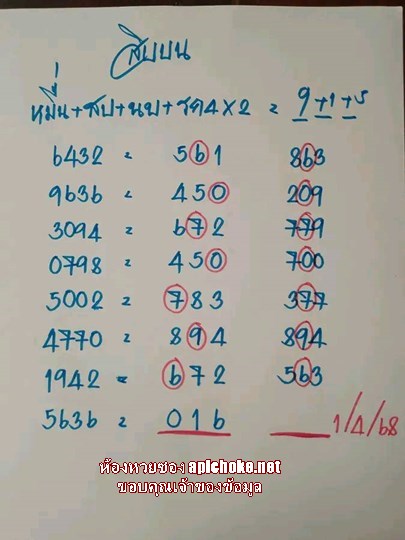 สิบบน
หมื่น+สบ+นบ+ X2 = 9+1+5
6432 = 561 863
9636 = 450 209
3094 = 672 779
0798 = 450 700
5002 = 783 377
4770 = 894 894
1942 = 672 563
5636 = 016 1/4/68
ห้องหวยซอง apichoke.net
ขอบคุณเจ้าของข้อมูล